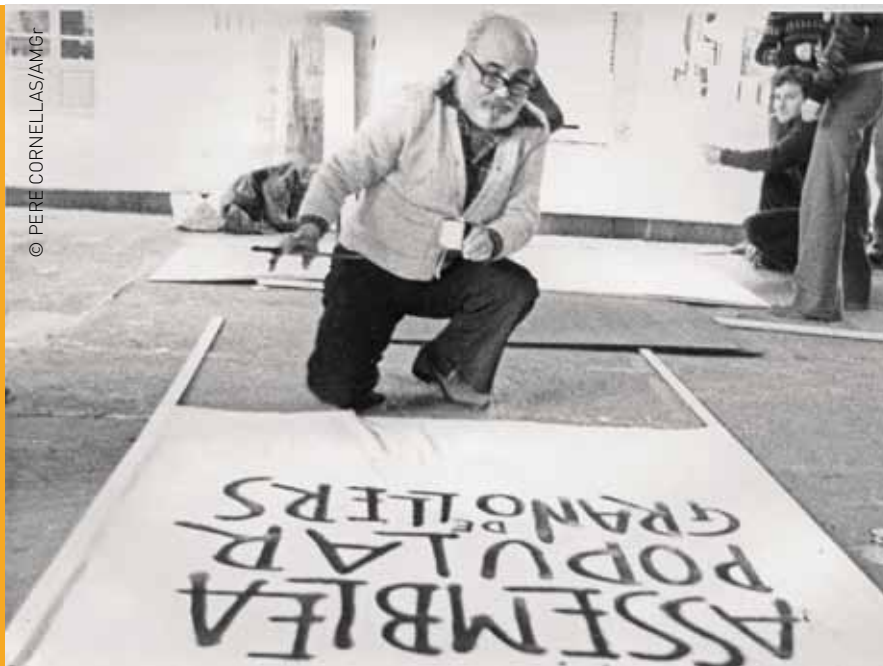 © PERE CORNELLAS/AMGr
ASSEMBLEA
POPULAR
DE
GRANOLLERS